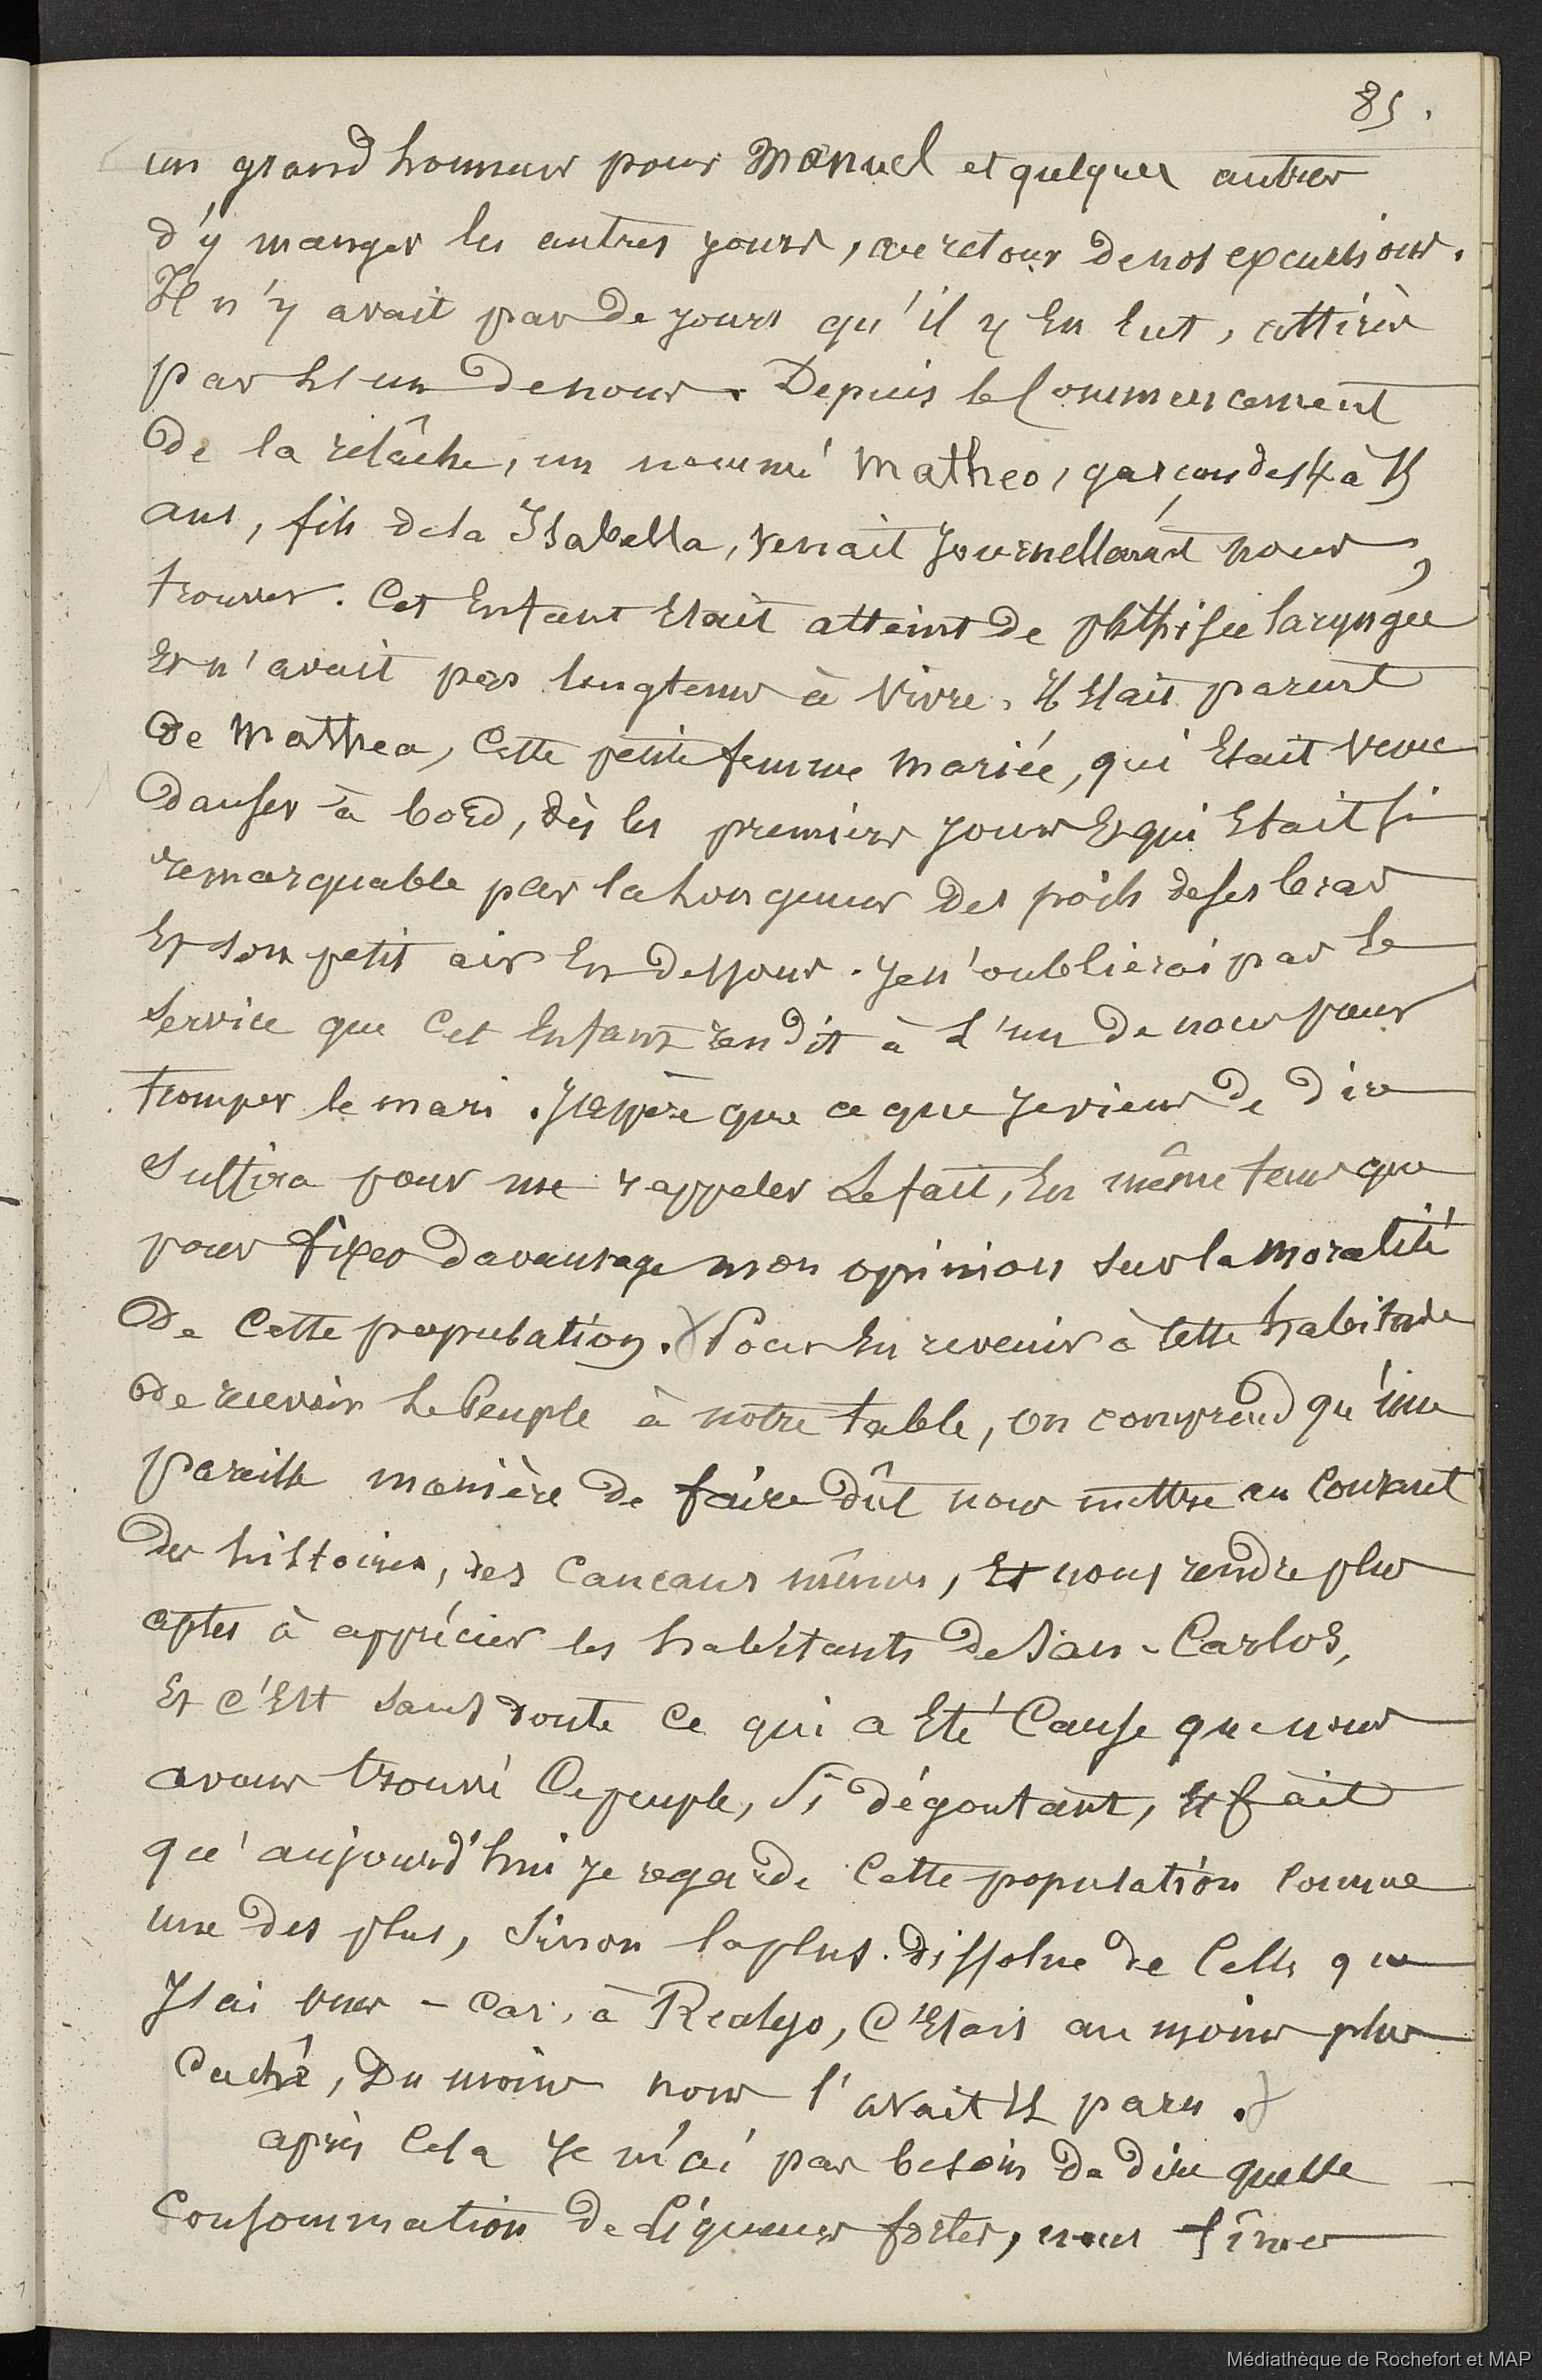 85.
un grand honneur pour Manuel et quelques autres
d'y manger les autres jours, au retour de nos excursions.
Il n'y avait pas de jours qu'il y en eut, attirés
par l'un de nous. Depuis le Commencement
de la relâche, un nommé Matheo, garçon de 14 à 15
ans, fils de la Isabella, venait journellement nous
trouver. Cet enfant était atteint de phthisie laryngée
et n'avait pas longtems à vivre, il était parent
de Mathea, Cette petite femme mariée, qui était venue
danser à bord, dès les premiers jours et qui était si
remarquable par la longueur des poils de ses bras
et son petit air en dessous. Je n'oublierai pas le
service que Cet enfant rendit à l'un de nous pour
tromper le mari. J'espère que ce que je viens de dire
suffira pour me rappeler le fait, en même tems que
pour fixer davantage mon opinion sur la moralité
de Cette population. Pour en revenir à Cette habitude
de recevoir le Peuple à notre table, on comprend qu'une
pareille manière de faire dût nous mettre au Courant
des histoires, des Cancans mêmes, et nous rendre plus
aptes à apprécier les habitants de San-Carlos,
et C'est sans doute Ce qui a été Cause que nous
avons trouvé Ce peuple, si dégoutant, et fait
qu'aujourd'hui je regarde Cette population Comme
une des plus, sinon la plus dissolue de Celles que
j'ai vues - Car, à Realejo, C'était au moins plus
Caché, du moins nous l'avait il paru.
après Cela je n'ai pas besoin de dire quelle
Consommation de Liqueurs fortes, nous fîmes
Médiathèque de Rochefort et MAP